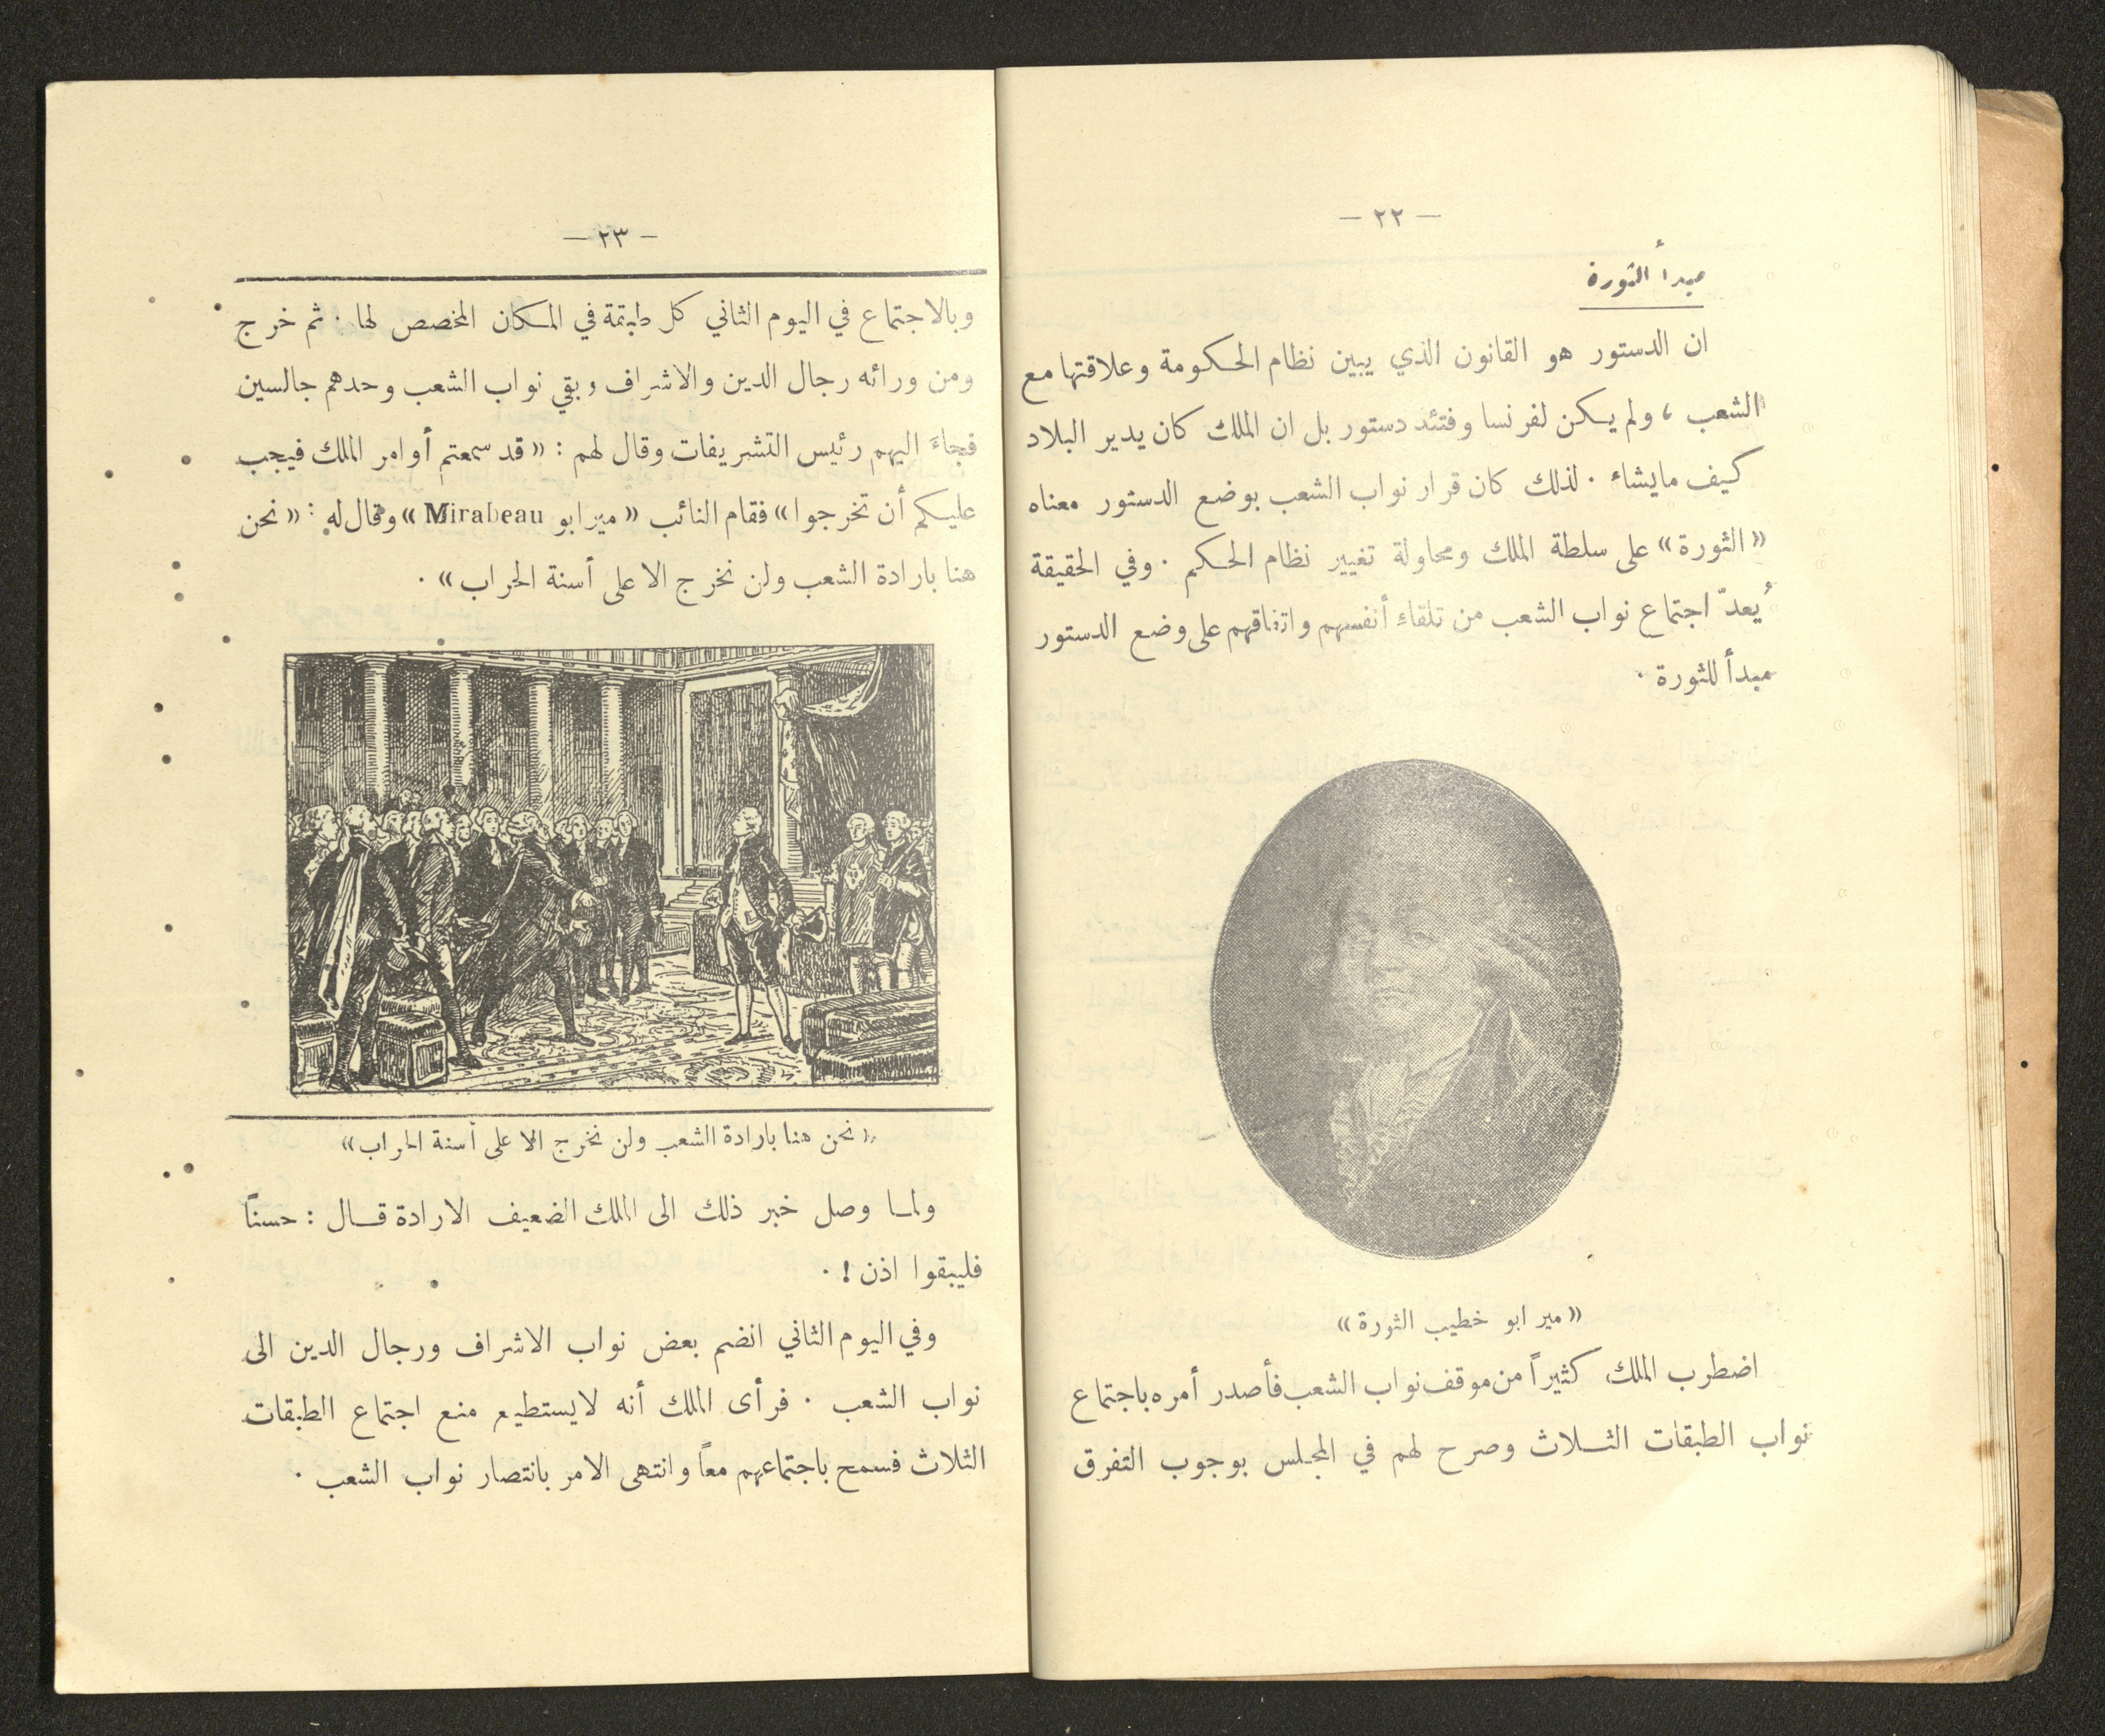 — ٢٢ —
مبدأ الثورة
ان الدستور هو القانون الذي يبين نظام الحكومة وعلاقتها مع
الشعب ، ولم يكن لفرنسا وقتئذ دستور بل ان الملك كان يدير البلاد
كيف مايشاء . لذلك كان قرار نواب الشعب بوضع الدستور معناه
«الثورة» على سلطة الملك ومحاولة تغيير نظام الحكم . وفي الحقيقة
يُعدّ اجتماع نواب الشعب من تلقاء أنفسهم واتفاقهم على وضع الدستور
مبدأ للثورة .
«ميرابو خطيب الثورة»
اضطرب الملك كثيراً من موقف نواب الشعب فأصدر أمره باجتماع
نواب الطبقات الثلاث وصرح لهم في المجلس بوجوب التفرق
— ٢٣ —
وبالاجتماع في اليوم الثاني كل طبقة في المكان المخصص لها . ثم خرج
ومن ورائه رجال الدين والاشراف وبقي نواب الشعب وحدهم جالسين
فجاءَ اليهم رئيس التشريفات وقال لهم : «قد سمعتم أوامر الملك فيجب
عليكم أن تخرجوا» فقام النائب «ميرابو Mirabeau» وقال له : «نحن
هنا بارادة الشعب ولن نخرج الا على أسنة الحراب» .
«نحن هنا بارادة الشعب ولن نخرج الا على أسنة الحراب»
ولما وصل خبر ذلك الى الملك الضعيف الارادة قال : حسناً
فليبقوا اذن ! .
وفي اليوم الثاني انضم بعض نواب الاشراف ورجال الدين الى
نواب الشعب . فرأى الملك أنه لايستطيع منع اجتماع الطبقات
الثلاث فسمح باجتماعهم معاً وانتهى الامر بانتصار نواب الشعب .